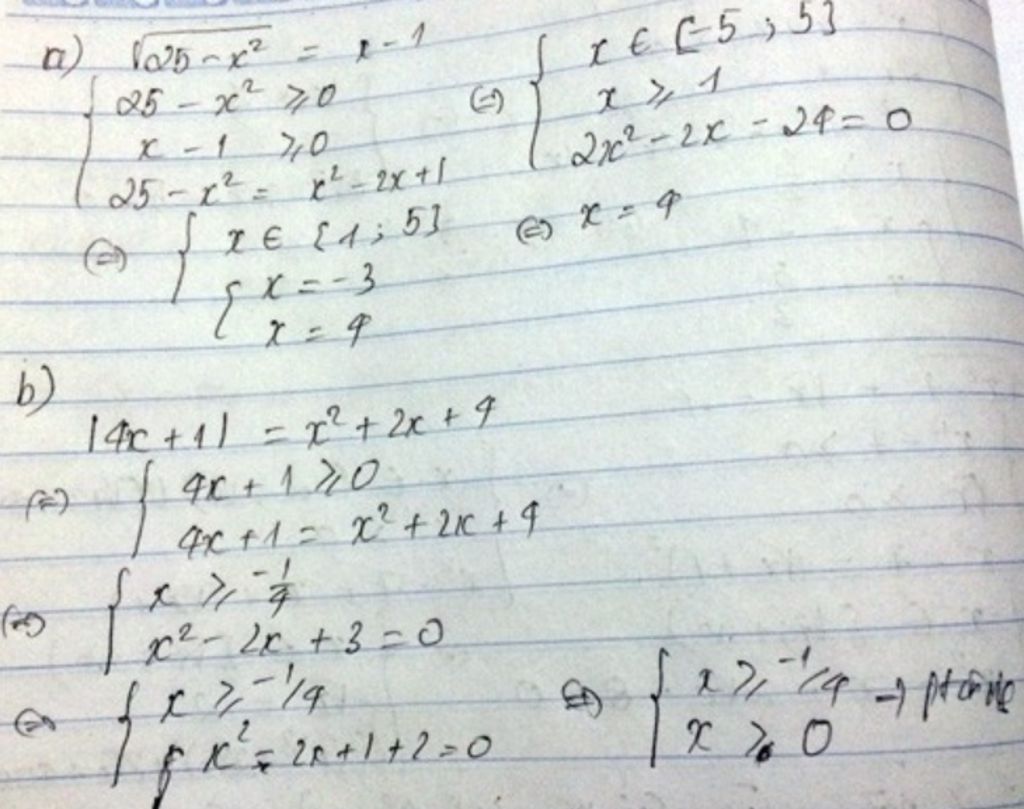 a) √25 - x² = x - 1
25 - x² ≥ 0
x - 1 ≥ 0
25 - x² = x² - 2x + 1
(=) x ∈ [-5 ; 5]
x ≥ 1
2x² - 2x - 24 = 0
(=) x ∈ [1 ; 5]
x = -3
x = 4
(=) x = 4
b)
|4x + 1| = x² + 2x + 4
(=) 4x + 1 ≥ 0
4x + 1 = x² + 2x + 4
(=) x ≥ -1/4
x² - 2x + 3 = 0
(=) x ≥ -1/4
x² - 2x + 1 + 2 = 0
(=) x ≥ -1/4 →
x ≥ 0